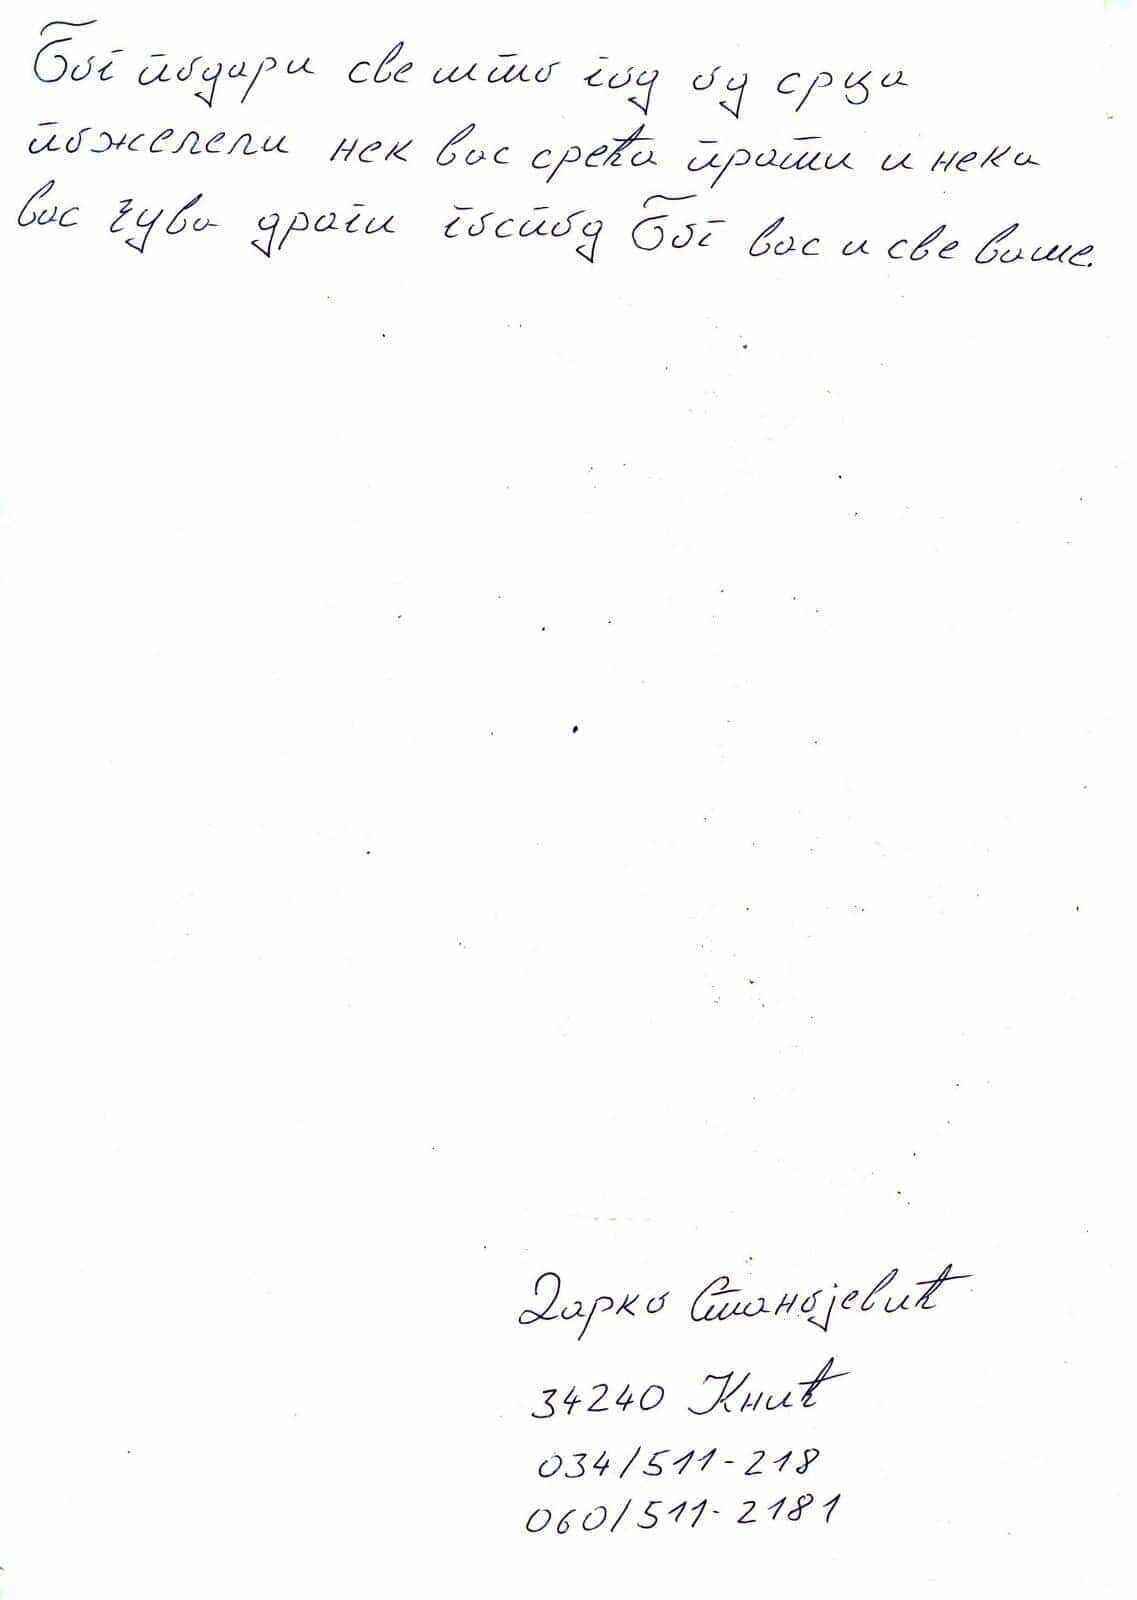 Бог подари све што год од срца
пожелели нек вас срећа прати и нека
вас чува драги господ Бог вас и све ваше.
Дарко Станојевић
34240 Кнић
034/511-218
060/511-2181